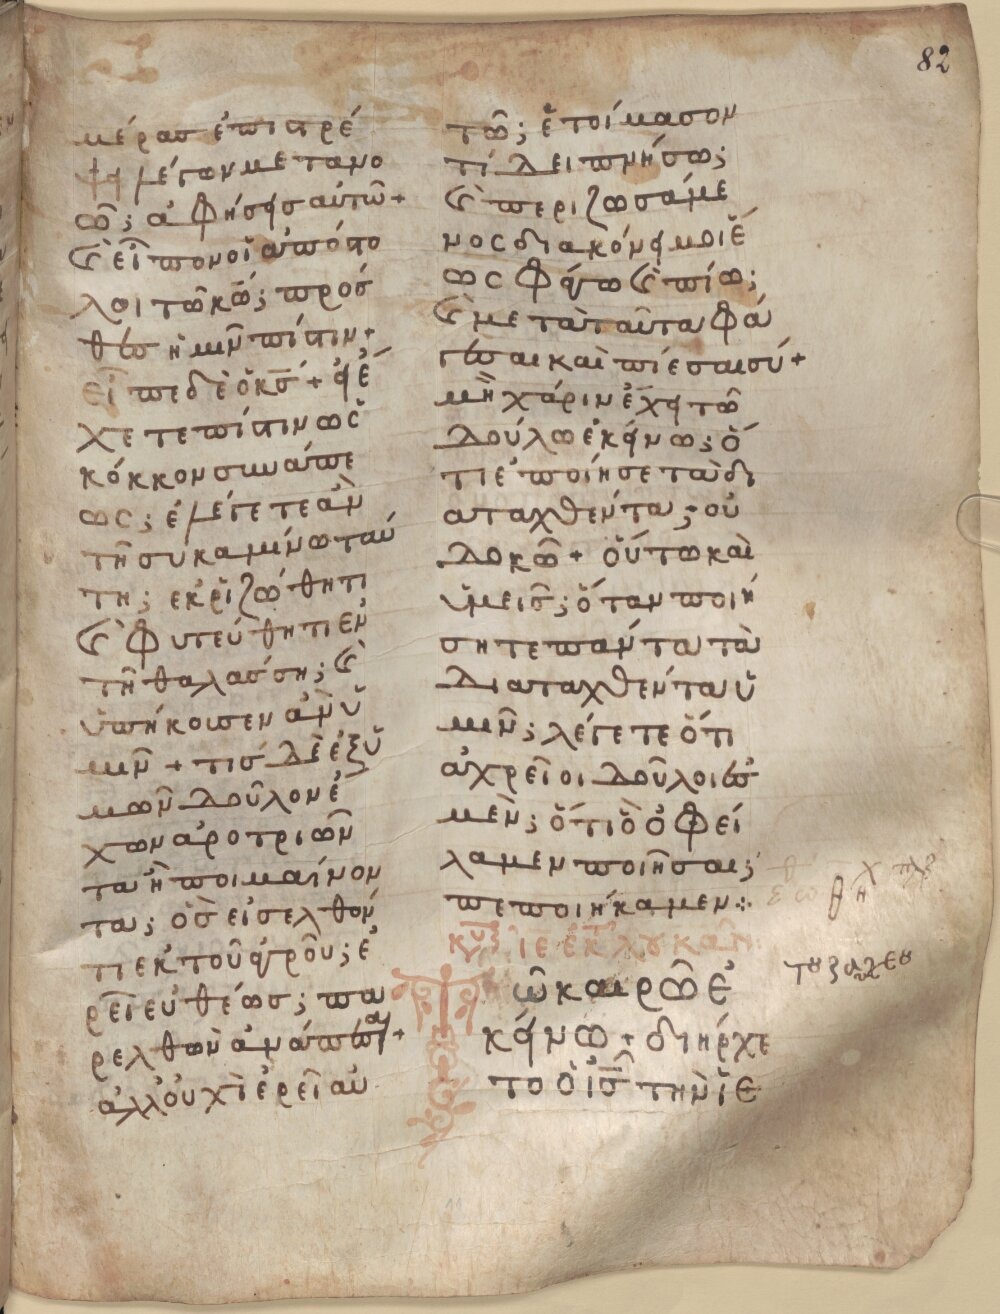 82
μέρασ ἐπιστρέ
ψη λέγων μετανο
ῶ; ἀφήσησ αὐτῶ+
κ(αὶ) εἶπον οἱ ἀπόστο
λοι τῶ κ̅ω̅; πρόσ
θεσ ἡμῖν πίστιν+
εἶπε δὲ ὁ κ̅σ̅+ εἰ ἔ
χετε πίστιν ὡσ
κόκκον σινάπε
ωσ; ἐλέγετε ἂν
τῆ συκαμίνω ταύ
τη; ἐκριζώθητι
κ(αὶ) φυτεύθητι ἐν
τῆ θαλάσση; κ(αὶ)
ὑπήκουσεν ἂν ὑ
μῖν + τίσ δὲ ἐξ ὑ
μῶν δοῦλον ἔ
χων ἀροτριῶν
τα ἢ ποιμαίνον
τα; ὃσ εἰσελθόν
τι ἐκ τοῦ ἀγροῦ; ἐ
ρεῖ εὐθέωσ; πα
ρελθὼν ἀνάπεσαι+
ἀλλ' οὐχὶ ἐρεῖ αὐ
τῶ; ἑτοίμασον
τί δειπνήσω;
κ(αὶ) περιζωσάμε
νοσ διακόνει μοι ἕ
ωσ φάγω κ(αὶ) πίω;
κ(αὶ) μετὰ ταῦτα φά
γεσαι καὶ πίεσαι σύ+
μὴ χάριν ἔχει τῶ
δούλω ἐκείνω; ὅ
τι ἐποίησε τὰ δι
αταχθέντα; οὐ
δοκῶ+ οὕτω καὶ
ὑμεῖσ; ὅταν ποιή
σητε πάντα τὰ
διαταχθέντα ὑ
μῖν; λέγετε ὅτι
ἀχρεῖοι δοῦλοι ἐσ
μέν; ὅτι ὃ ὀφεί
λαμεν ποιῆσαι;
πεποιήκαμεν:
κυ ιε ἐκ λουκᾶν
Τῶ καιρῶ ἐ
κείνω + διήρχε
το ὁ ι̅σ̅ τὴν ἱε
του ζακχεου